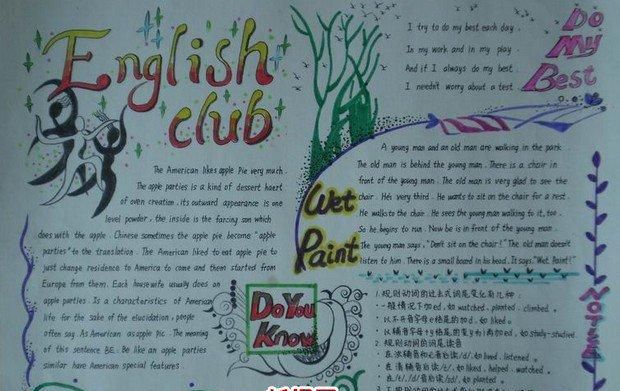 English
club
The American likes apple Pie very much.
The apple parties is a kind of dessert haert
of oven creation. its outward appearance is one
level powder, the inside is the farcing son which
does with the apple. Chinese sometimes the apple pie become "apple
parties" to the translation. The American liked to eat apple pie to
just change residence to America to come and them started from
Europe from them. Each housewife usually does an
apple parties. Is a characteristics of American
life for the sake of the elucidation, people
often say. As American as apple pie. The meaning
of this sentence BE: Be like an apple parties
similar have American special features
Do You
Know
I try to do my best each day.
In my work and in my play.
And if I always do my best.
I needn't worry about a test.
Do
My
Best
Wet
Paint
A young man and an old man are walking in the park.
The old man is behind the young man. There is a chair in
front of the young man. The old man is very glad to see the
chair. He's very thired. He wants to sit on the chair for a rest.
He walks to the chair. He sees the young man walking to it, too.
So he begins to run. Now be in front of the young man.
The young man says, "Don't sit on the chair!" The old man doesn't
listen to him. There is a small board in his head. It says "Wet Paint!"
1.规则动词的过去式词尾变化有几种:
一般情况下加ed,如watched、planted、climbed。
以不开音字母e结尾的加d,如liked。
以辅音字母+y结尾的变y为i再加ed,如study-studied.
2.规则动词的词尾读音
在浊辅音和元音后读/d/.如lived、listened。
在清辅音后读/t/.如liked、helped、watched。
在/t/、/d/音后读/id/.如planted